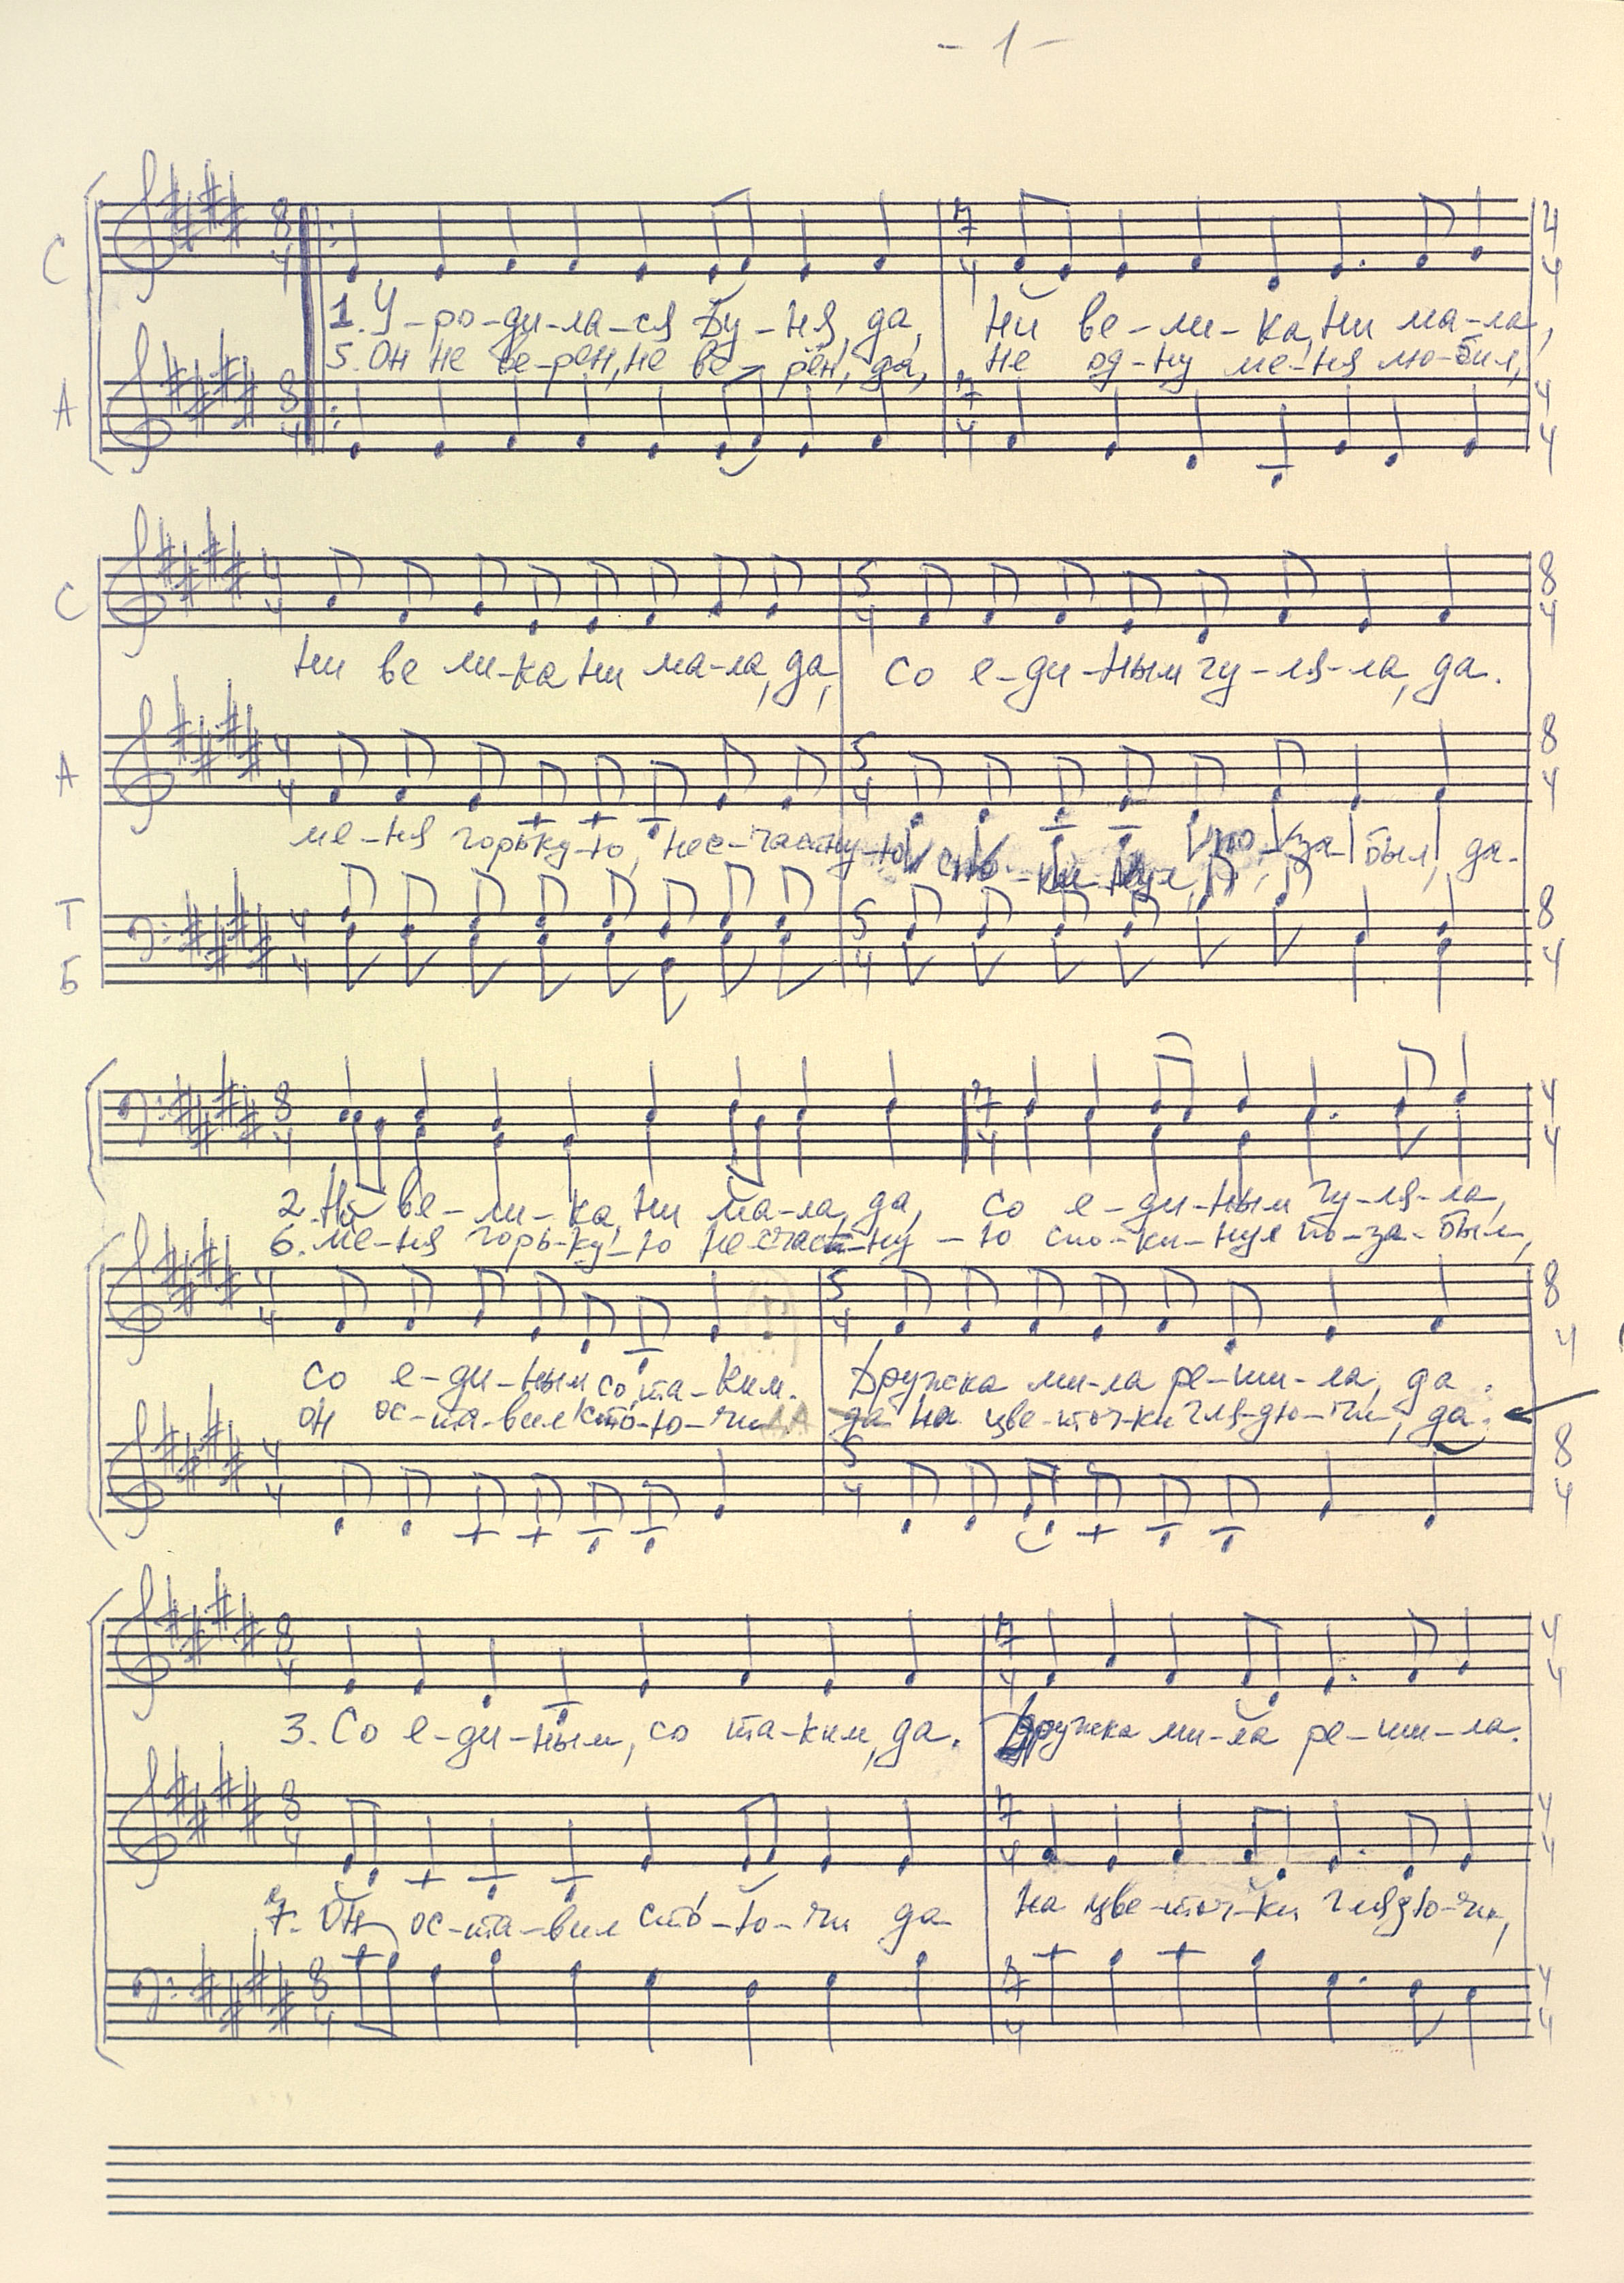 - 1 -
С 8 4 7 4 4 4
1. У-ро-ди-ла-ся Ду-ня, да, ни ве-ли-ка, ни ма-ла,
5. Он не ве-рен, не ве-рен, да, не од-ну ме-ня лю-бил,
А 8 4 7 4 4 4
С 4 4 5 4 8 4
ни ве ли-ка ни ма-ла, да, со е-ди-ным гу-ля-ла, да.
А 4 4 5 4 8 4
ме-ня горьку-ю, нес-частну-ю спо-ки нул, по-за был, да.
Т Б 4 4 5 4 8 4
8 4 7 4 4 4
2. Ни ве-ли-ка, ни ма-ла, да, со е-ди-ным гу-ля-ла,
6. ме-ня горь-ку-ю несчаст-ну-ю спо-ки-нул по-за-был,
4 4 5 4 8 4
со е-ди-ным со та-ким. Дружка ми-ла ре-ши-ла, да.
он ос-та-вил сто-ю-чи ДА да на цве-точ-ки гля-дю-чи, да.
4 4 5 4 8 4
8 4 7 4 4 4
3. Со е-ди-ным, со та-ким, да. Дружка ми-ла ре-ши-ла.
8 4 7 4 4 4
7. Он ос-та-вил сто-ю-чи да на цве-точ-ки глядю-чи,
8 4 7 4 4 4